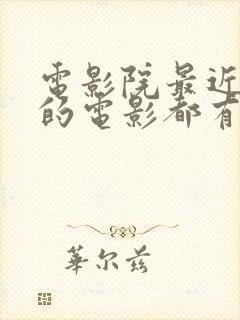 電影院最近
的電影都有
華尔兹